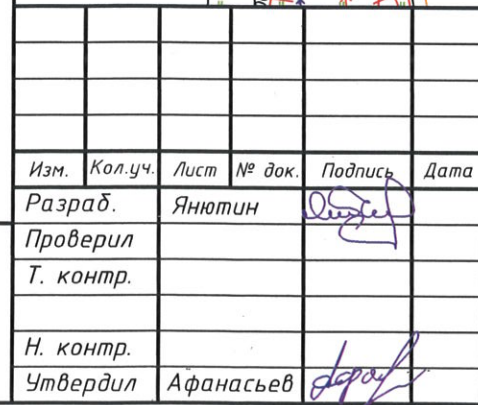 Изм. Кол.уч. Лист № док. Подпись Дата
Разраб. Янютин
Проверил
Т. контр.
Н. контр.
Утвердил Афанасьев